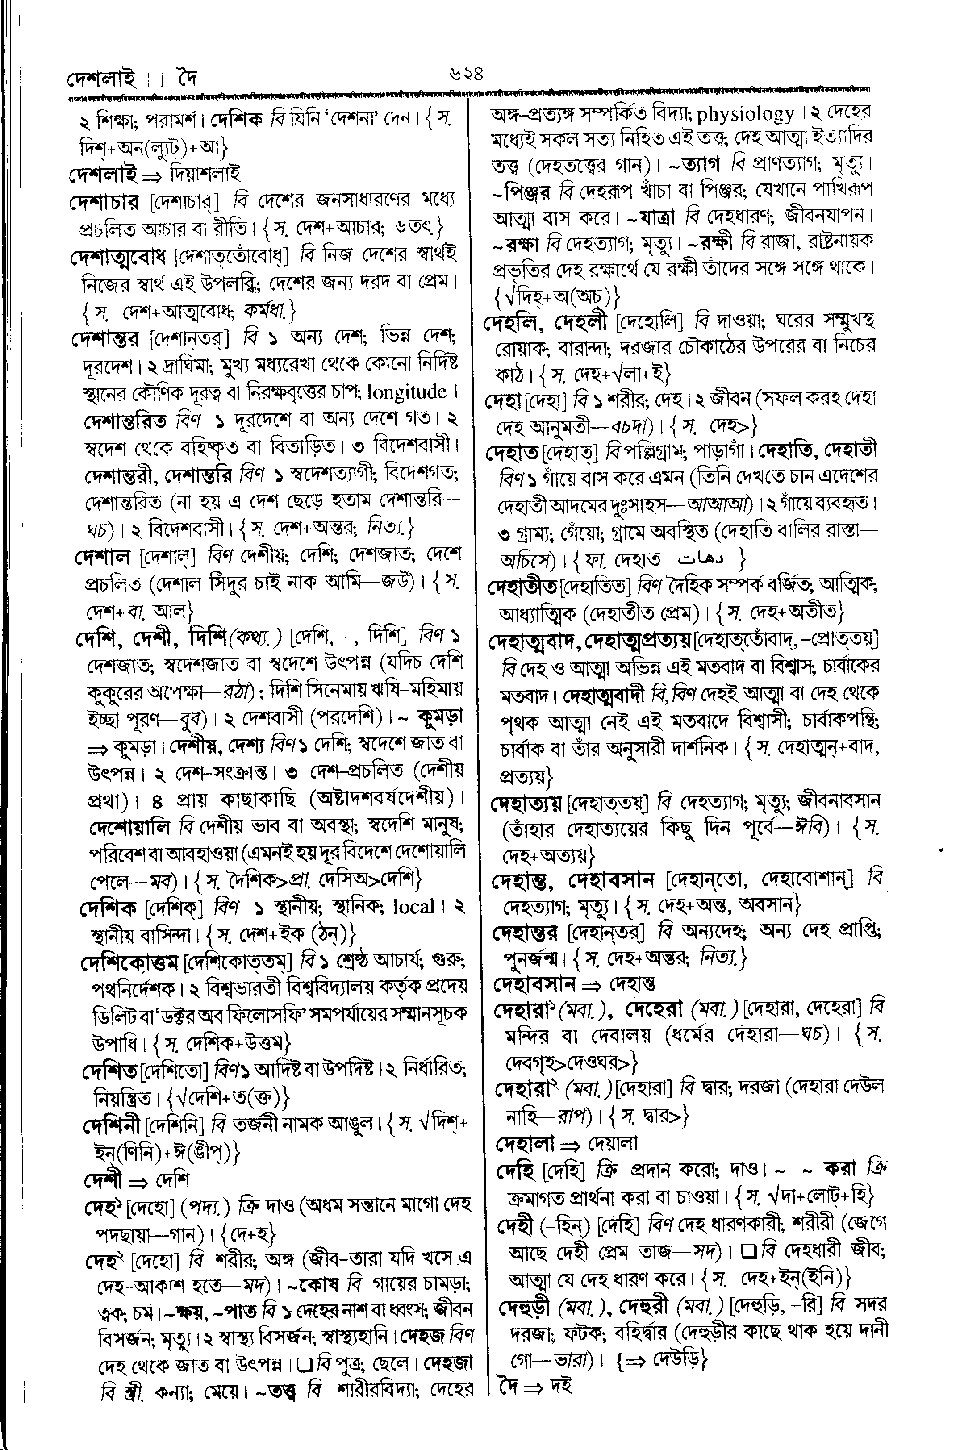 দেশলাই ।। দৈ
৬২৪
২ শিক্ষা; পরামর্শ। দেশিক বি যিনি ‘দেশনা’ দেন। {স.
দিশ্+অন(ল্যুট)+আ}
দেশলাই ⇒ দিয়াশলাই
দেশাচার [দেশাচার্] বি দেশের জনসাধারণের মধ্যে
প্রচলিত আচার বা রীতি। {স. দেশ+আচার; ৬তৎ}
দেশাত্মবোধ [দেশাত্‌তোঁবোধ্] বি নিজ দেশের স্বার্থই
নিজের স্বার্থ এই উপলব্ধি; দেশের জন্য দরদ বা প্রেম।
{স. দেশ+আত্মবোধ; কর্মধা.}
দেশান্তর [দেশান্‌তর্] বি ১ অন্য দেশ; ভিন্ন দেশ;
দূরদেশ। ২ দ্রাঘিমা; মুখ্য মধ্যরেখা থেকে কোনো নির্দিষ্ট
স্থানের কৌণিক দূরত্ব বা নিরক্ষবৃত্তের চাপ; longitude।
দেশান্তরিত বিণ ১ দূরদেশে বা অন্য দেশে গত। ২
স্বদেশ থেকে বহিষ্কৃত বা বিতাড়িত। ৩ বিদেশবাসী।
দেশান্তরী, দেশান্তরি বিণ ১ স্বদেশত্যাগী; বিদেশগত;
দেশান্তরিত (না হয় এ দেশ ছেড়ে হতাম দেশান্তরি—
ঘচ)। ২ বিদেশবাসী। {স. দেশ+অন্তর; নিত্য.}
দেশাল [দেশাল্] বিণ দেশীয়; দেশি; দেশজাত; দেশে
প্রচলিত (দেশাল সিঁদুর চাই নাক আমি—জউ)। {স.
দেশ+বা. আল}
দেশি, দেশী, দিশি(কথ্য.) [দেশি, -, দিশি] বিণ ১
দেশজাত; স্বদেশজাত বা স্বদেশে উৎপন্ন (যদিচ দেশি
কুকুরের অপেক্ষা—রঠা); দিশি সিনেমায় ঋষি-মহিমায়
ইচ্ছা পূরণ—বুব)। ২ দেশবাসী (পরদেশি)। ~ কুমড়া
⇒ কুমড়া। দেশীয়, দেশ্য বিণ ১ দেশি; স্বদেশে জাত বা
উৎপন্ন। ২ দেশ-সংক্রান্ত। ৩ দেশ-প্রচলিত (দেশীয়
প্রথা)। ৪ প্রায় কাছাকাছি (অষ্টাদশবর্ষদেশীয়)।
দেশোয়ালি বি দেশীয় ভাব বা অবস্থা; স্বদেশি মানুষ;
পরিবেশ বা আবহাওয়া (এমনই হয় দূর বিদেশে দেশোয়ালি
পেলে—মব)। {স. দৈশিক>প্রা. দেসিঅ>দেশি}
দেশিক [দেশিক্] বিণ ১ স্থানীয়; স্থানিক; local। ২
স্থানীয় বাসিন্দা। {স. দেশ+ইক (ঠন্)}
দেশিকোত্তম [দেশিকোত্‌তম্] বি ১ শ্রেষ্ঠ আচার্য; গুরু;
পথনির্দেশক। ২ বিশ্বভারতী বিশ্ববিদ্যালয় কর্তৃক প্রদেয়
ডিলিট বা ‘ডক্টর অব ফিলোসফি’ সমপর্যায়ের সম্মানসূচক
উপাধি। {স. দেশিক+উত্তম}
দেশিত [দেশিতো] বিণ ১ আদিষ্ট বা উপদিষ্ট। ২ নির্ধারিত;
নিয়ন্ত্রিত। {√দেশি+ত(ক্ত)}
দেশিনী [দেশিনি] বি তর্জনী নামক আঙুল। {স. √দিশ্+
ইন্(ণিনি)+ঈ(ঙীপ্)}
দেশী ⇒ দেশি
দেহ¹ [দেহো] (পদ্য.) ক্রি দাও (অধম সন্তানে মাগো দেহ
পদছায়া—গান)। {দে+হ}
দেহ² [দেহো] বি শরীর; অঙ্গ (জীব-তারা যদি খসে এ
দেহ-আকাশ হতে—মদ)। ~কোষ বি গায়ের চামড়া;
ত্বক; চর্ম। ~ক্ষয়, ~পাত বি ১ দেহের নাশ বা ধ্বংস; জীবন
বিসর্জন; মৃত্যু। ২ স্বাস্থ্য বিসর্জন; স্বাস্থ্যহানি। দেহজ বিণ
দেহ থেকে জাত বা উৎপন্ন। ❑ বি পুত্র; ছেলে। দেহজা
বি স্ত্রী. কন্যা; মেয়ে। ~তত্ত্ব বি শারীরবিদ্যা; দেহের
অঙ্গ-প্রত্যঙ্গ সম্পর্কিত বিদ্যা; physiology। ২ দেহের
মধ্যেই সকল সত্য নিহিত এই তত্ত্ব; দেহ আত্মা ইত্যাদির
তত্ত্ব (দেহতত্ত্বের গান)। ~ত্যাগ বি প্রাণত্যাগ; মৃত্যু।
~পিঞ্জর বি দেহরূপ খাঁচা বা পিঞ্জর; যেখানে পাখিরূপ
আত্মা বাস করে। ~যাত্রা বি দেহধারণ; জীবনযাপন।
~রক্ষা বি দেহত্যাগ; মৃত্যু। ~রক্ষী বি রাজা, রাষ্ট্রনায়ক
প্রভৃতির দেহ রক্ষার্থে যে রক্ষী তাঁদের সঙ্গে সঙ্গে থাকে।
{√দিহ্+অ(অচ)}
দেহলি, দেহলী [দেহোলি] বি দাওয়া; ঘরের সম্মুখস্থ
রোয়াক; বারান্দা; দরজার চৌকাঠের উপরের বা নিচের
কাঠ। {স. দেহ+√লা+ই}
দেহা [দেহা] বি ১ শরীর; দেহ। ২ জীবন (সফল করহ দেহা
দেহ আনুমতী—বচদা)। {স. দেহ>}
দেহাত [দেহাত্] বি পল্লিগ্রাম; পাড়াগাঁ। দেহাতি, দেহাতী
বিণ ১ গাঁয়ে বাস করে এমন (তিনি দেখতে চান এদেশের
দেহাতী আদমের দুঃসাহস—আআআ)। ২ গাঁয়ে ব্যবহৃত।
৩ গ্রাম্য; গেঁয়ো; গ্রামে অবস্থিত (দেহাতি বালির রাস্তা—
অচিসে)। {ফা. দেহাত دهات }
দেহাতীত [দেহাতিত] বিণ দৈহিক সম্পর্ক বর্জিত; আত্মিক;
আধ্যাত্মিক (দেহাতীত প্রেম)। {স. দেহ+অতীত}
দেহাত্মবাদ, দেহাত্মপ্রত্যয় [দেহাত্‌তোঁবাদ্, –প্রোত্‌তয়্]
বি দেহ ও আত্মা অভিন্ন এই মতবাদ বা বিশ্বাস; চার্বাকের
মতবাদ। দেহাত্মবাদী বি, বিণ দেহই আত্মা বা দেহ থেকে
পৃথক আত্মা নেই এই মতবাদে বিশ্বাসী; চার্বাকপন্থি;
চার্বাক বা তাঁর অনুসারী দার্শনিক। {স. দেহাত্মন্+বাদ,
প্রত্যয়}
দেহাত্যয় [দেহাত্‌তয়্] বি দেহত্যাগ; মৃত্যু; জীবনাবসান
(তাঁহার দেহাত্যয়ের কিছু দিন পূর্বে—ঈবি)। {স.
দেহ+অত্যয়}
দেহান্ত, দেহাবসান [দেহান্‌তো, দেহাবোশান্] বি
দেহত্যাগ; মৃত্যু। {স. দেহ+অন্ত, অবসান}
দেহান্তর [দেহান্‌তর্] বি অন্যদেহ; অন্য দেহ প্রাপ্তি;
পুনর্জন্ম। {স. দেহ+অন্তর; নিত্য.}
দেহাবসান ⇒ দেহান্ত
দেহারা¹ (মবা.), দেহেরা (মবা.) [দেহারা, দেহেরা] বি
মন্দির বা দেবালয় (ধর্মের দেহারা—ঘচ)। {স.
দেবগৃহ>দেওঘর>}
দেহারা² (মবা.) [দেহারা] বি দ্বার; দরজা (দেহারা দেউল
নাহি—রাপ)। {স. দ্বার>}
দেহালা ⇒ দেয়ালা
দেহি [দেহি] ক্রি প্রদান করো; দাও। ~ ~ করা ক্রি
ক্রমাগত প্রার্থনা করা বা চাওয়া। {স. √দা+লোট্+হি}
দেহী (–হিন্) [দেহি] বিণ দেহ ধারণকারী; শরীরী (জেগে
আছে দেহী প্রেম তাজ—সদ)। ❑ বি দেহধারী জীব;
আত্মা যে দেহ ধারণ করে। {স. দেহ+ইন্(ইনি)}
দেহুড়ী (মবা.), দেহুরী (মবা.) [দেহুড়ি, -রি] বি সদর
দরজা; ফটক; বহির্দ্বার (দেহুড়ীর কাছে থাক হয়ে দানী
গো—ভারা)। {⇒ দেউড়ি}
দৈ ⇒ দই